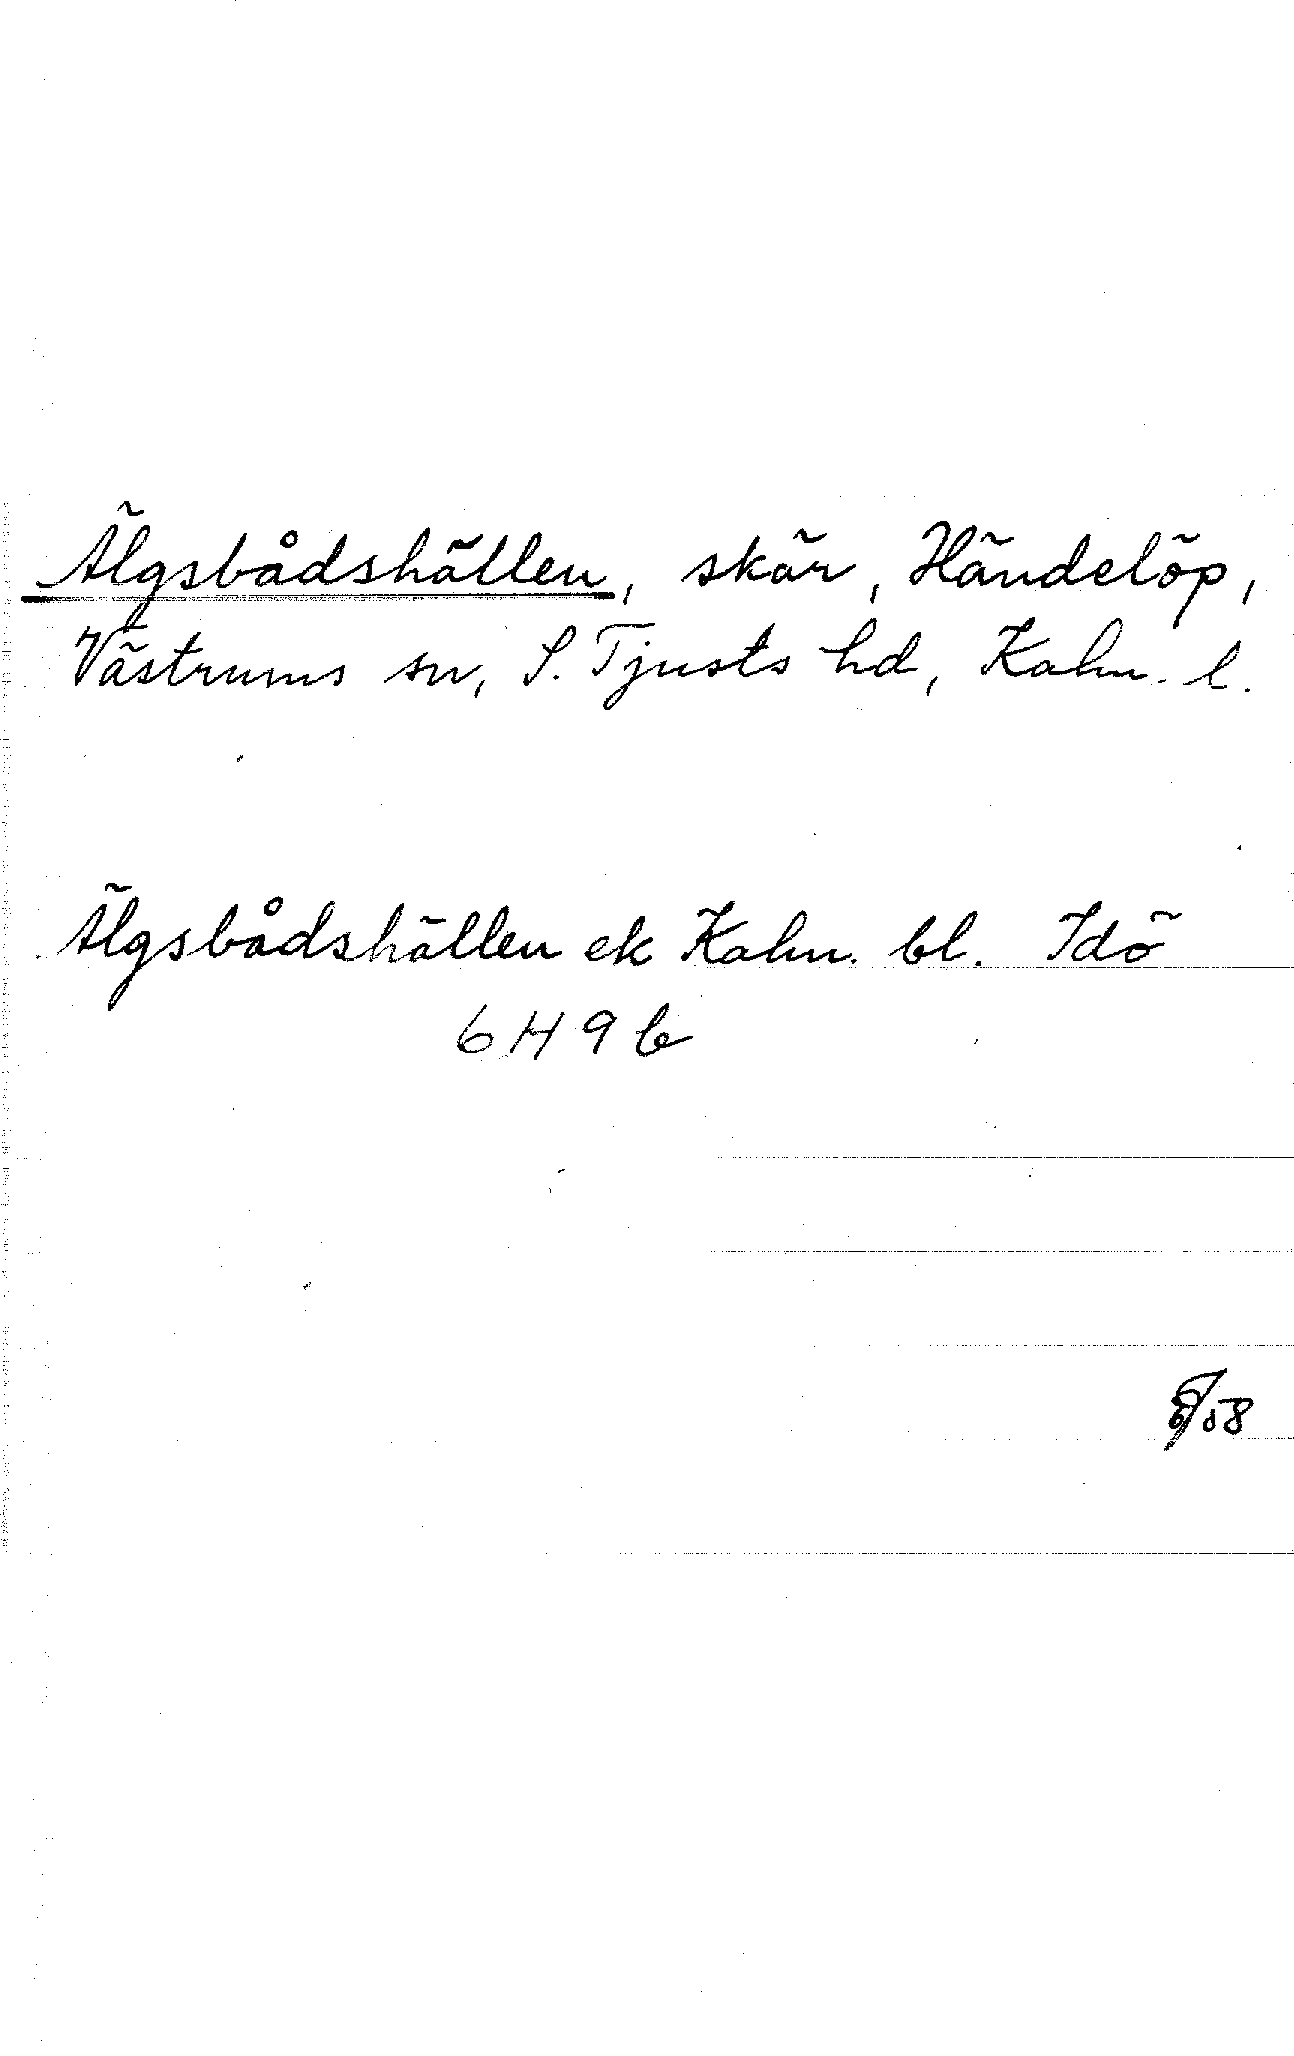 Älgsbådshällen, skär, Händelöp,
Västrums sn, S. Tjusts hd, Kalm. l.
Älgsbådshällen ek Kalm. bl. Idö
6 H 9 b